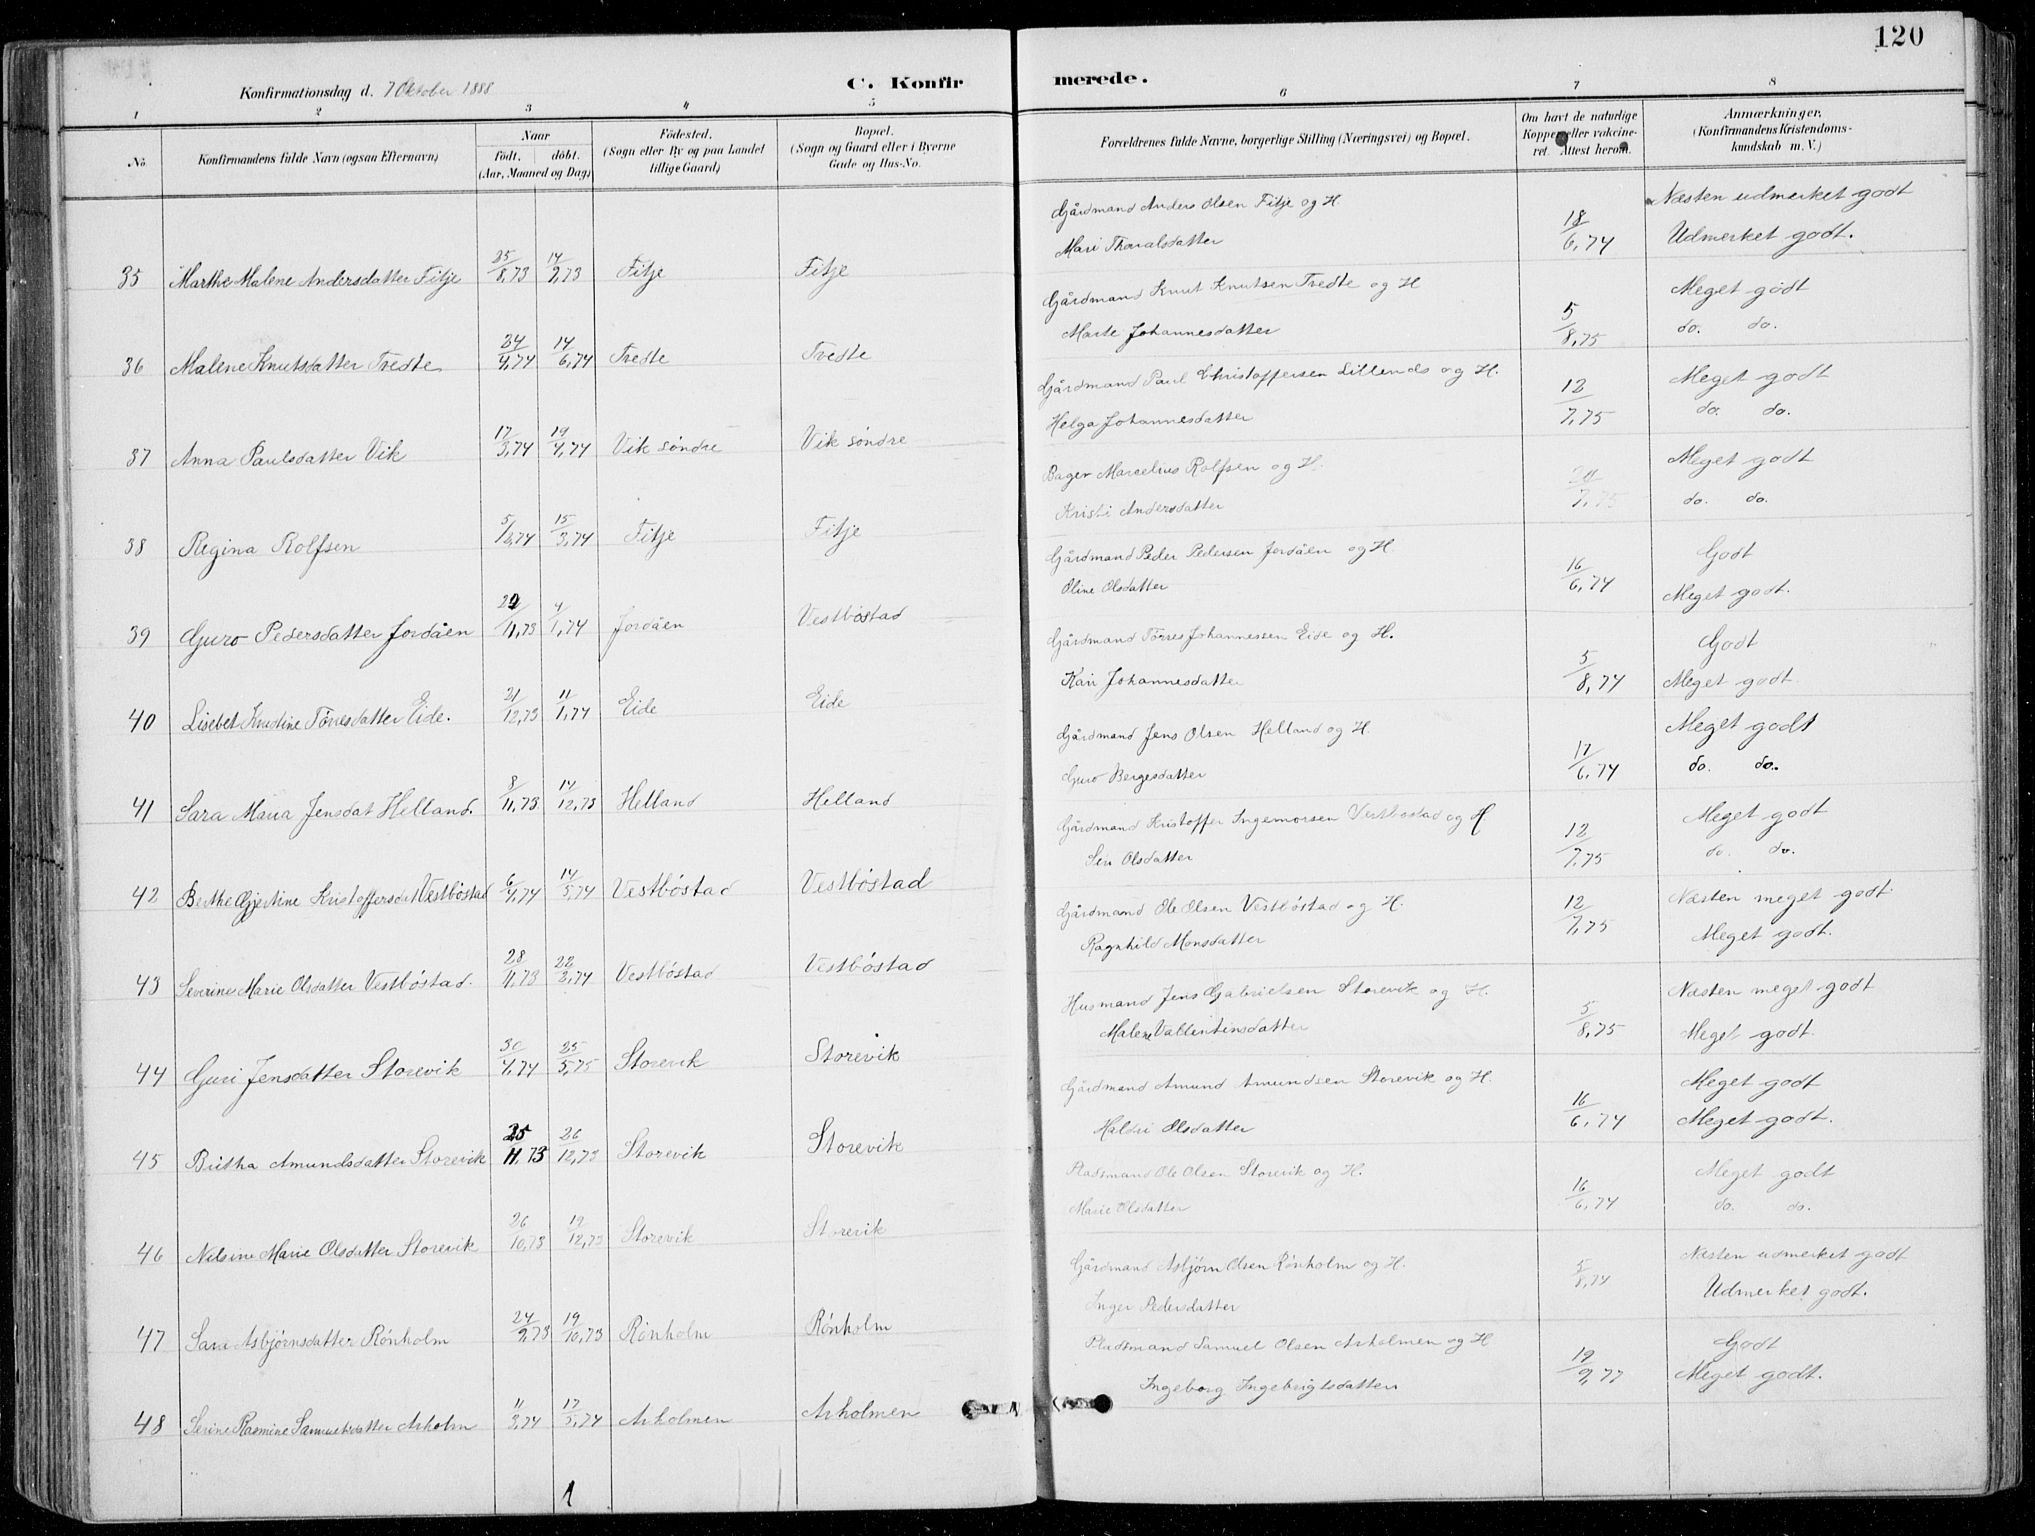 120
Konfirmationsdag d. 7 Oktober 1888
C. Konfirmerede.
1 2 3 4 5 6 7 8
No. Konfirmandens fulde Navn (ogsaa Efternavn) Naar födt. döbt. (Aar, Maaned og Dag) Födested. (Sogn eller By og paa Landet tillige Gaard) Bopæl. (Sogn og Gaard eller i Byerne Gade og Hus-No. Forældrenes fulde Navne, borgerlige Stilling (Næringsvei) og Bopæl. Om havt de naturlige Kopper eller vakcineret. Attest herom. Anmærkninger, (Konfirmandens Kristendomskundskab m. V.)
Gårdmand Anders Olsen Fitje og H. 18/6,74 Næsten udmerket godt
Mari Thoralsdatter Udmerket godt.
35 Marthe Malene Andersdatter Fitje 25/8,73 14/9,73 Fitje Fitje
Gårdmand Knut Knutsen Tredte og H 5/8,75 Meget godt
Marte Johannesdatter do. do.
36 Malene Knutsdatter Tredte 24/4,74 14/6,74 Tredte Tredte
Gårdmand Paul Christoffersen Lillends og H. 12/7,75 Meget godt
Helga Johannesdatter do. do.
37 Anna Paulsdatter Vik 17/3,74 19/4,74 Vik söndre Vik söndre
Bager Marcelius Rolfsen og H. 7,75 Meget godt
Kristi Andersdatter do. do.
38 Regina Rolfsen 5/2,74 15/3,74 Fitje Fitje
Gårdmand Peder Pedersen Jordåen og H. 16/6,74 Godt
Oline Olsdatter Meget godt.
39 Guro Pedersdatter Jordåen 11,73 4/1,74 Jordåen Vestböstad
Gårdmand Törres Johannessen Eide og H. 5/8,74 Godt
Kari Johannesdatter Meget godt.
40 Lisebet Knudine Törresdatter Eide. 21/12,73 11/1,74 Eide Eide
Gårdmand Jens Olsen Helland og H. 17/6,74 Meget godt
Guro Bergesdatter do. do.
41 Sara Maria Jensdat Helland. 8/11,73 14/12,73 Helland Helland
Gårdmand Kristoffer Ingemorsen Vestbostad og H 12/7,75 Meget godt
Siri Olsdatter do. do.
42 Berthe Gjertine Kristoffersdat Vestböstad 6/4,74 14/5,74 Vestböstad Vestböstad
Gårdmand Ole Olsen Vestböstad og H. 12/7,75 Næsten meget godt.
Ragnhild Monsdatter Meget godt.
43 Severine Marie Olsdatter Vestböstad. 28/11,73 22/2,74 Vestböstad Vestböstad
Husmand Jens Gabrielsen Storevik og H. 5/8,75 Næsten meget godt
Malene Vallentinsdatter Meget godt.
44 Guri Jensdatter Storevik 30/4,74 25/5,75 Storevik Storevik
Gårdmand Amund Amundsen Storevik og H. 16/6,74 Meget godt
Haldri Olsdatter Meget godt.
45 Britha Amundsdatter Storevik 25/11,73 26/12,73 Storevik Storevik
Pladsmand Ole Olsen Storevik og H. 16/6,74 Meget godt
Marie Olsdatter do. do.
46 Nilsine Marie Olsdatter Storevik 26/10,73 19/12,73 Storevik Storevik
Gårdmand Asbjörn Olsen Rönholm og H. 5/8,74 Næsten udmerket godt
Inger Pedersdatter Udmerket godt.
47 Sara Asbjörnsdatter Rönholm 24/9,73 19/10,73 Rönholm Rönholm
Pladsmand Samuel Olsen Arholmen og H 19/9,77 Godt
Ingeborg Ingebrigtsdatter Meget godt.
48 Serine Rasmine Samuelsdatter Arholm 11/3,74 17/5,74 Arholmen Arholmen